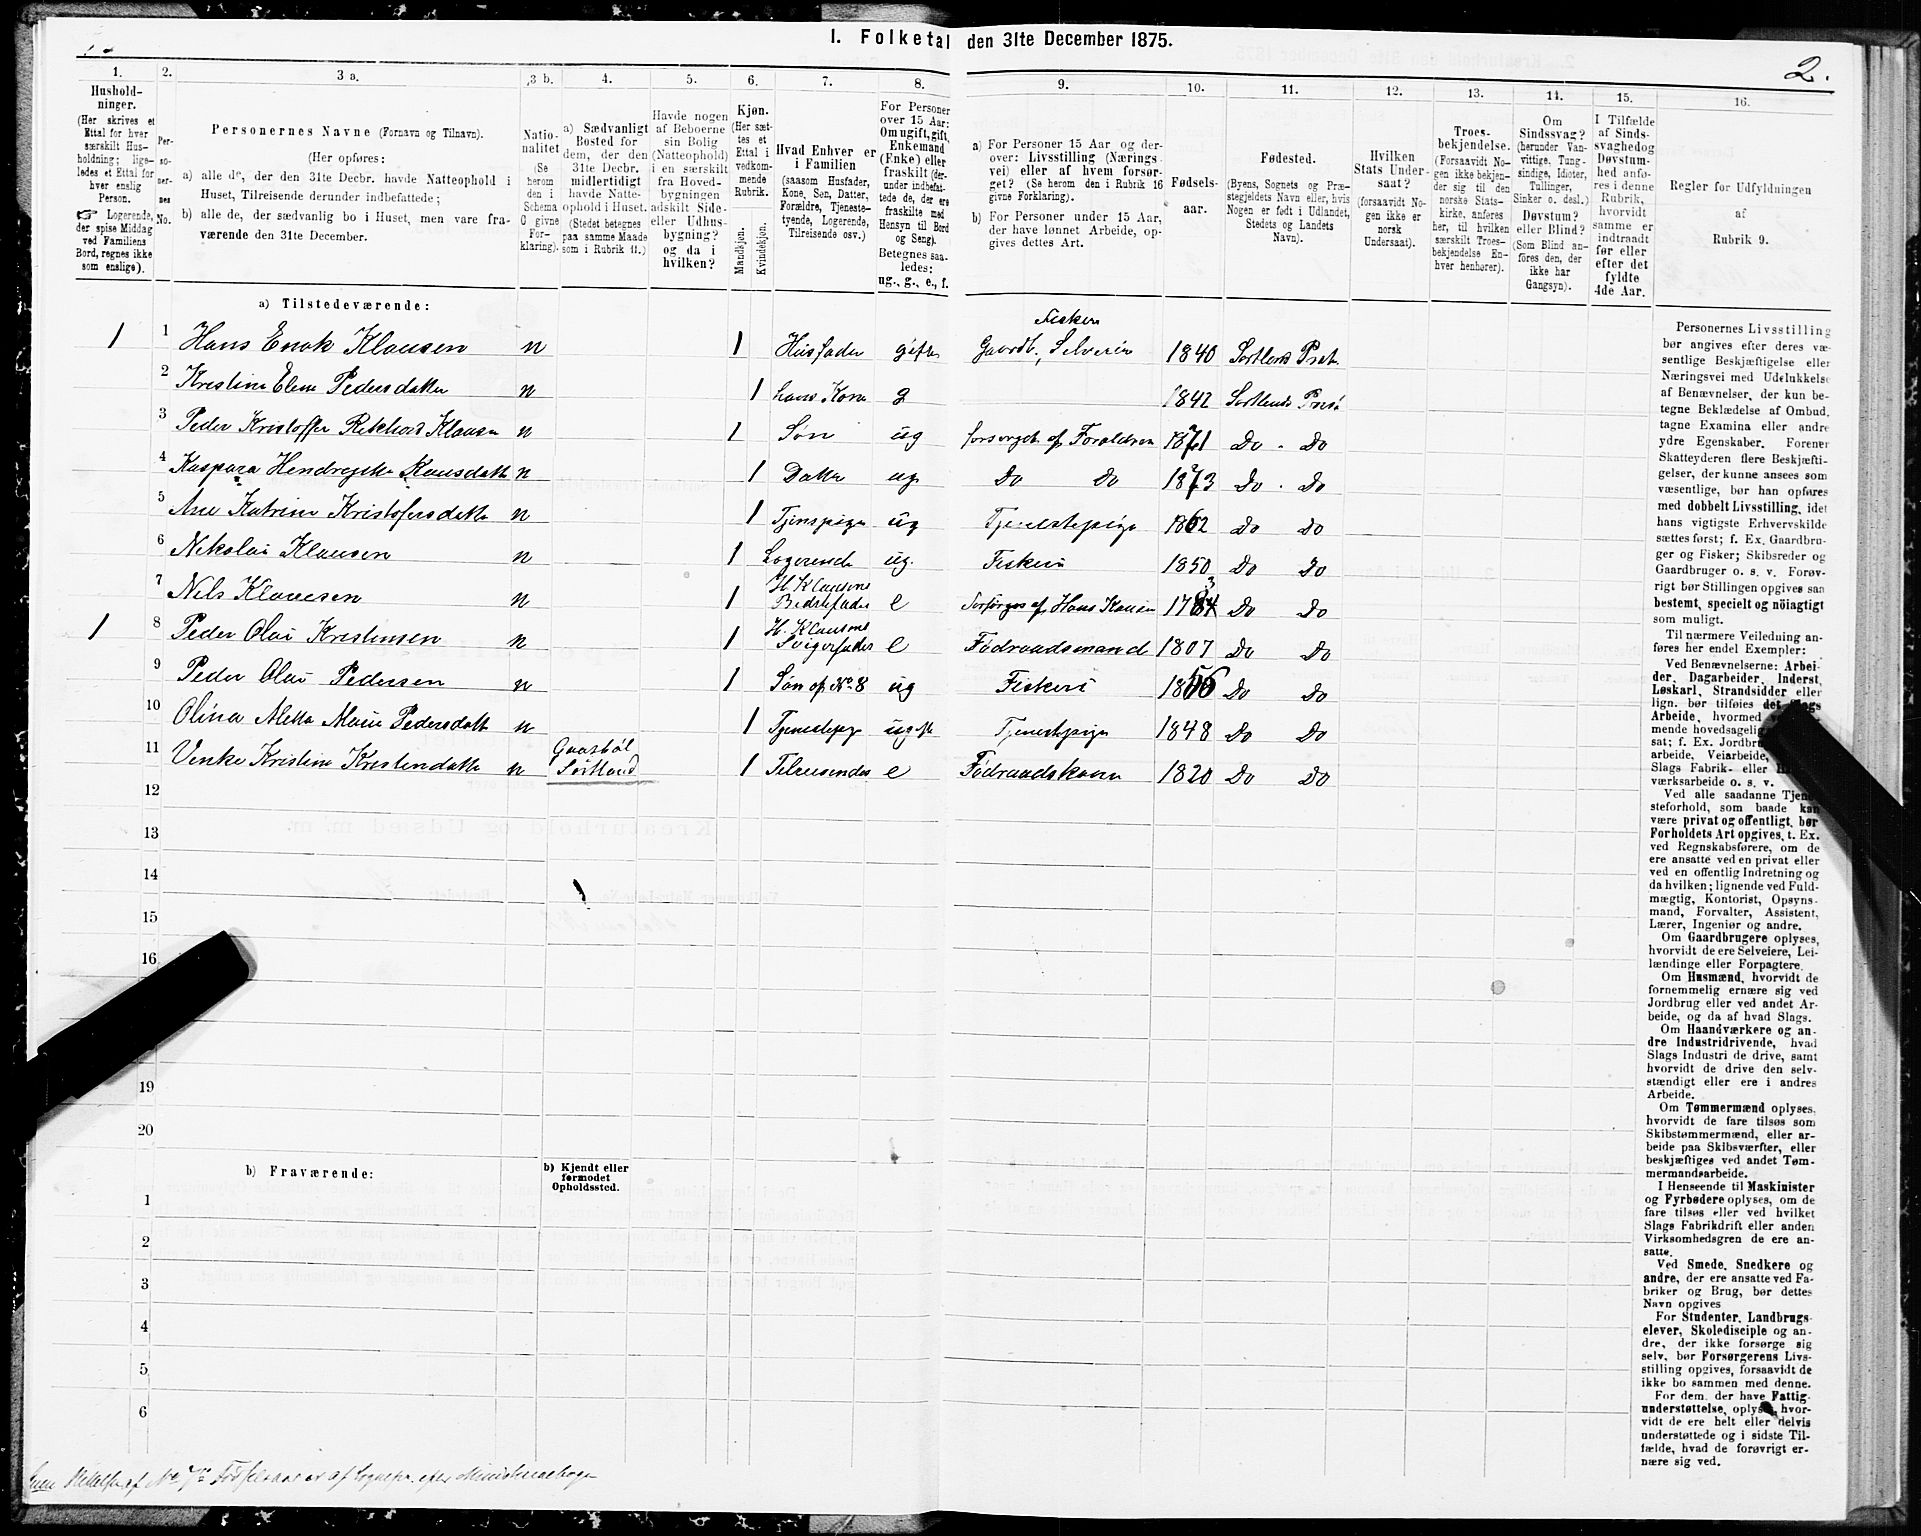 I. Folketal den 31te December 1875.
2.
1.
2.
3 a.
3 b.
4.
5.
6.
7.
8.
9.
10.
11.
12.
13.
14.
15.
16.
Hushold-
ninger.
(Her skrives et
Ettal for hver
særskilt Hus-
holdning; lige-
ledes et Ettal for
hver enslig
Person.
☞ Logerende,
der spise Middag
ved Familiens
Bord, regnes ikke
som enslige).
Per-
so-
ner-
nes
No.
Personernes Navne (Fornavn og Tilnavn).
(Her opføres:
a) alle de, der den 31te Decbr. havde Natteophold i
Huset, Tilreisende derunder indbefattede;
b) alle de, der sædvanlig bo i Huset, men vare fra-
værende den 31te December.
Natio-
nalitet
(Se
herom
den i
Schema
C givne
For-
klaring).
a) Sædvanligt
Bosted for
dem, der den
31te Decbr.
midlertidigt
havde Natte-
ophold i Huset.
(Stedet betegnes
paa samme Maade
som i Rubrik 11.)
Havde nogen
af Beboerne
sin Bolig
(Natteophold)
i en særskilt
fra Hoved-
bygningen
adskilt Side-
eller Udhus-
bygning?
og da i
hvilken?
Kjøn.
(Her sæt-
tes et
Ettal i
vedkom-
mende
Rubrik.
Mandkjøn.
Kvindekjøn.
Hvad Enhver er
i Familien
(saasom Husfader,
Kone, Søn, Datter,
Forældre, Tjeneste-
tyende, Logerende,
Tilreisende osv.)
For Personer
over 15 Aar:
Om ugift, gift,
Enkemand
(Enke) eller
fraskilt (der-
under indbefat-
tede de, der ere
fraskilte med
Hensyn til Bord
og Seng).
Betegnes saa-
ledes:
ug., g., e., f.
a) For Personer 15 Aar og der-
over: Livsstilling (Nærings-
vei) eller af hvem forsør-
get? (Se herom den i Rubrik 16
givne Forklaring).
b) For Personer under 15 Aar,
der have lønnet Arbeide, op-
gives dettes Art.
Fødsels-
aar.
Fødested.
(Byens, Sognets og Præ-
stegjeldets Navn eller, hvis
Nogen er født i Udlandet,
Stedets og Landets
Navn).
Hvilken
Stats Under-
saat?
(forsaavidt No-
gen ikke er
norsk
Undersaat).
Troes-
bekjendelse.
(Forsaavidt No-
gen ikke bekjen-
der sig til den
norske Stats-
kirke, anføres
her, til hvilken
særskilt Troes-
bekjendelse En-
hver henhører).
Om
Sindssvag?
(herunder Van-
vittige, Tung-
sindige, Idioter,
Tullinger,
Sinker o. desl.)
Døvstum?
eller Blind?
(Som Blind an-
føres den, der
ikke har
Gangsyn).
I Tilfælde
af Sinds-
svaghed og
Døvstum-
hed anfø-
res i denne
Rubrik,
hvorvidt
samme er
indtraadt
før eller
efter det
fyldte
4de Aar.
Regler for Udfyldningen
af
Rubrik 9.
a) Tilstedeværende:
1 1 Hans Enok Klausen n 1 Husfader gift Gaardb, Selveier Fisker 1840 Sortlands Præst
2 Kristine Elene Pedersdatter n 1 hans Kone g 1842 Sortlands Præst
3 Peder Kristoffer Klausen n 1 Søn ug forsørget af Forældrene 1871 Do - Do
4 Kaspara Hansdatter n 1 Datter ug Do Do 1873 Do - Do
5 Ane Katrine Kristofersdatter n 1 Tjenspige ug Tjenestepige 1862 Do Do
6 Nikolai Klausen n 1 Logerende ug. Fiskeri 1850 Do Do
7 Nils Klausen n 1 H Klausens Bedstefader e Forsørges af Hans Do Do
1 8 Peder Olai Kristensen n 1 H. Klausens Svigerfader e Fødraadsmand 1807 Do Do
9 Peder Olai Pedersen n 1 Søn af No 8 ug Fiskeri 1856 Do Do
10 Olina Metta Marie Pedersdatt n 1 Tjenestepige Tjenestepige 1848 Do Do
11 Venke Kristine Kristendatter n Sortland 1 Tilreisendes e Fødraadskone 1820 Do Do
12
13
14
15
16
19
20
b) Fraværende:
b) Kjendt eller
formodet
Opholdssted.
1
2
3
4
5
6
Personernes Livsstilling
bør angives efter deres væ-
sentlige Beskjæftigelse eller
Næringsvei med Udelukkelse
af Benævnelser, der kun be-
tegne Beklædelse af Ombud,
tagne Examina eller andre
ydre Egenskaber. Forener
Skatteyderen flere Beskjæfti-
gelser, der kunne ansees som
væsentlige, bør han opføres
med dobbelt Livsstilling, idet
hans vigtigste Erhvervskilde
sættes først; f. Ex. Gaardbru-
ger og Fisker; Skibsreder og
Gaardbruger o. s. v. Forøv-
rigt bør Stillingen opgives saa
bestemt, specielt og nöiagtigt
som muligt.
Til nærmere Veiledning an-
føres her endel Exempler:
Ved Benævnelserne: Arbei-
der, Dagarbeider, Inderst,
Løskarl, Strandsidder eller
lign. bør tilføies det Slags
Arbeide, hvormed
mende hovedsagelig
sat; f. Ex. Jordbr
arbeide, Veiarbeide,
Slags Fabrik- eller
værksarbeide o. s. v.
Ved alle saadanne Tjene-
steforhold, som baade kan
være privat og offentligt, bør
Forholdets Art opgives, t. Ex.
ved Regnskabsførere, om de
ere ansatte ved en privat eller
ved en offentlig Indretning og
da hvilken; lignende ved Fuld-
mægtig, Kontorist, Opsyns-
mand, Forvalter, Assistent,
Lærer, Ingeniør og andre.
Om Gaardbrugere oplyses,
hvorvidt de ere Selveiere, Lei-
lændinge eller Forpagtere.
Om Husmænd, hvorvidt de
fornemmelig ernære sig ved
Jordbrug eller ved andet Ar-
beide, og da af hvad Slags.
Om Haandværkere og an-
dre Industridrivende, hvad
Slags Industri de drive, samt
hvorvidt de drive den selv-
stændigt eller ere i andres
Arbeide.
Om Tømmermænd oplyses,
hvorvidt de fare tilsøs som
Skibstømmermænd, eller ar-
beide paa Skibsværfter, eller
beskjæftiges ved andet Tøm-
mermandsarbeide.
I Henseende til Maskinister
og Fyrbødere oplyses, om de
fare tilsøs eller ved hvilket
Slags Fabrikdrift eller anden
Virksomhedsgren de ere an-
satte.
Ved Smede, Snedkere og
andre, der ere ansatte ved Fa-
briker og Brug, bør dettes
Navn opgives
For Studenter, Landbrugs-
elever, Skoledisciple og an-
dre, der ikke forsørge sig
selv, bør Forsørgerens Livs-
stilling opgives, forsaavidt de
ikke bo sammen med denne.
For dem, der have Fattig-
understøttelse, oplyses, hvor-
vidt de ere helt eller delvis
understøttede og i sidste Til-
fælde, hvad de forøvrigt er-
nære sig ved.
af No 7's Fødselsaar er af Sognepr. efter Ministerialbogen